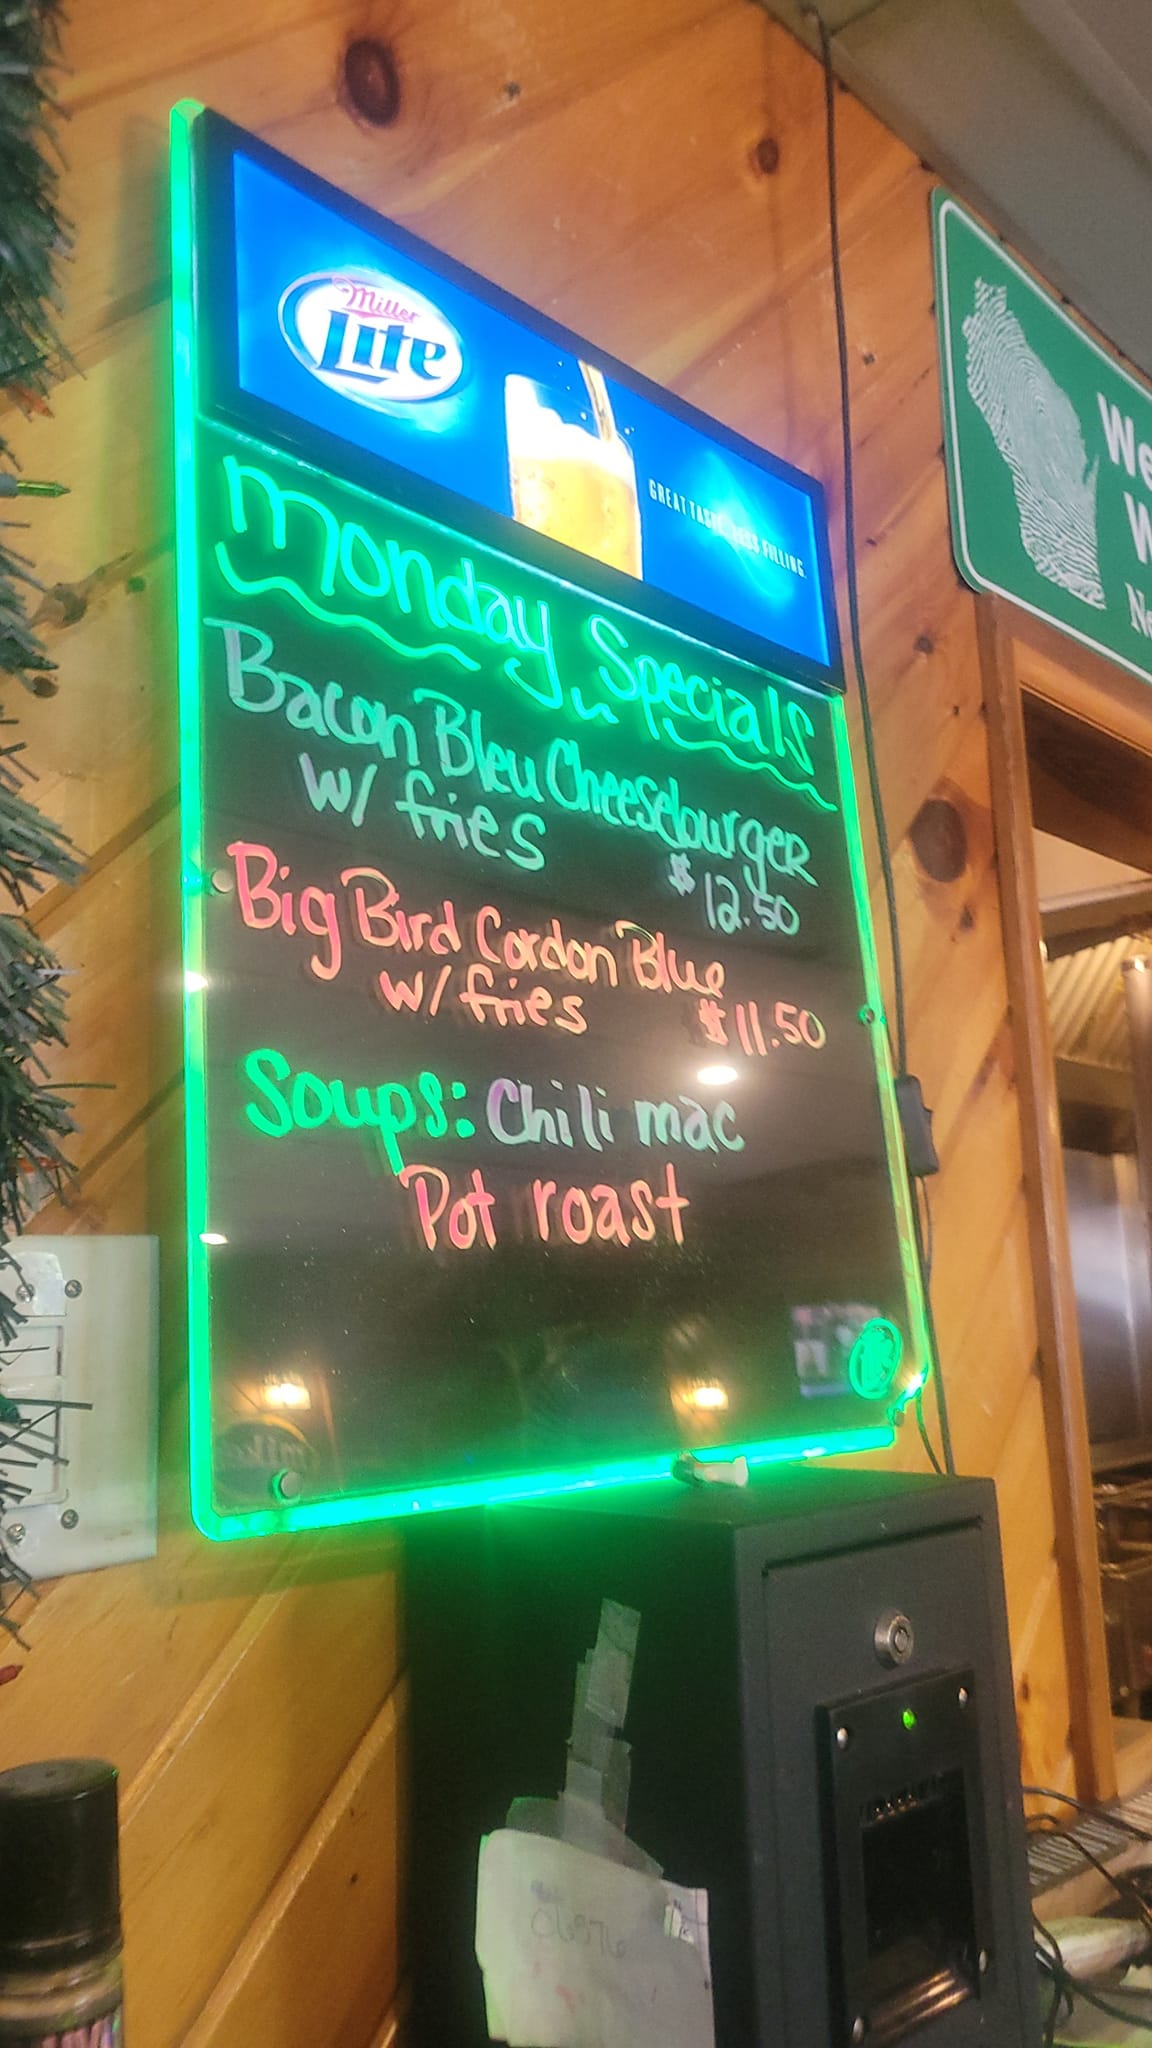 Miller
Lite
GREAT TASTE. LESS FILLING.
Monday Specials
Bacon Bleu Cheeseburger
w/ fries
$12.50
Big Bird Cordon Blue
w/ fries $11.50
Soups: Chili mac
Pot roast